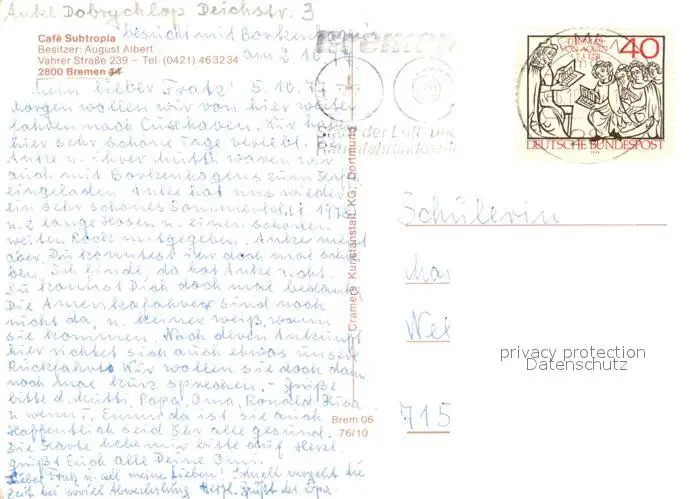 Anke Dobrychlop Deichstr. 3
besucht mit Borken
am 2.10.
Café Subtropia
Besitzer: August Albert
Vahrer Straße 239 – Tel. (0421) 463234
2800 Bremen 41
Mein lieber Fratz! 5.10.
Morgen wollen wir von hier weiter
fahren nach Cuxhaven. Wir haben
hier sehr schöne Tage verlebt.
Anke u. ihre Mutti waren wir
auch mit Borkenhagens zum
eingeladen. Anke hat uns wieder
ein sehr schönes Sommerkleid
u. 2 lange Hosen u. einen schönen
weiten Rock mitgegeben. Anke meint
aber, Du könntest ihr doch mal schrei
ben. Ich finde da hat Anke recht.
Du kannst Dich doch mal bedanken
Die Amerikafahrer sind noch
nicht da, u. keiner weiß, wann
sie kommen. Nach deren Ankunft
hier richtet sich auch etwas unsere
Rückfahrt. Wir wollen sie doch dann
noch mal kurz sprechen. – Grüße
bitte d. Mutti, Papa, Oma, Ronald
u wenn
da ist sie auch
Hoffentlich seid Ihr alle gesund.
Die Karte hebe mir bitte auf. Herzl.
grüßt Euch alle Deine Omi.
Lieber Fratz u. all meine Lieben! Schnell vergeht die
Zeit bei soviel Abwechslung. Herzl. grüßt der Opa
Cramers Kunstanstalt KG, Dortmund
Brem 06
76/10
Bremen
Stadt der Luft- und
Raumfahrtindustrie
THOMAS
VON AQUIN
40
DEUTSCHE BUNDESPOST
Schülerin
Wei
715
privacy protection
Datenschutz